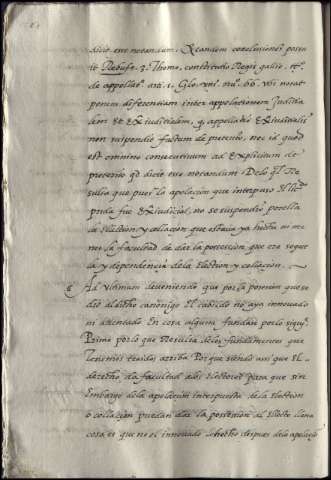 dicit esse notandum. Et eandem conclusionem posuit
Rebuff. 2. Thomo, constitutio Regni galie. tt.
de appellat. arti. 1. Glo. uni. nu. 66. ubi notat
perpetuam diferentiam inter appelationem Judicialem
et extrajudicialem, quia appellatio extrajudicialis
non suspendit factum de preterito, nec id quod
est omnino consecutivum ad explicitum de
preterito quod dicit esse notandum. De lo qual Resulta
que pues la apelacion que interpuso el
fue extrajudicial, no se suspendio por ella
la election y collacion que estava ya hecha ni menos
la facultad de dar la possession que era sequela
y dependencia de la election y collacion.
6 Ad ultimum deveniendo que por la possession que se
dio al dicho canonigo el cabildo no aya innovado
ni attentado en cosa alguna fundase por lo siguiente
Primo por lo que Resulta de los fundamentos que
tenemos traidos arriba Porque siendo assi que el
derecho da facultad a los electores para que sin
embargo de la apelacion interpuesta de la election
o collacion puedan dar la possession al electo llana
cosa es que no es innovado lo hecho despues de la apelacion